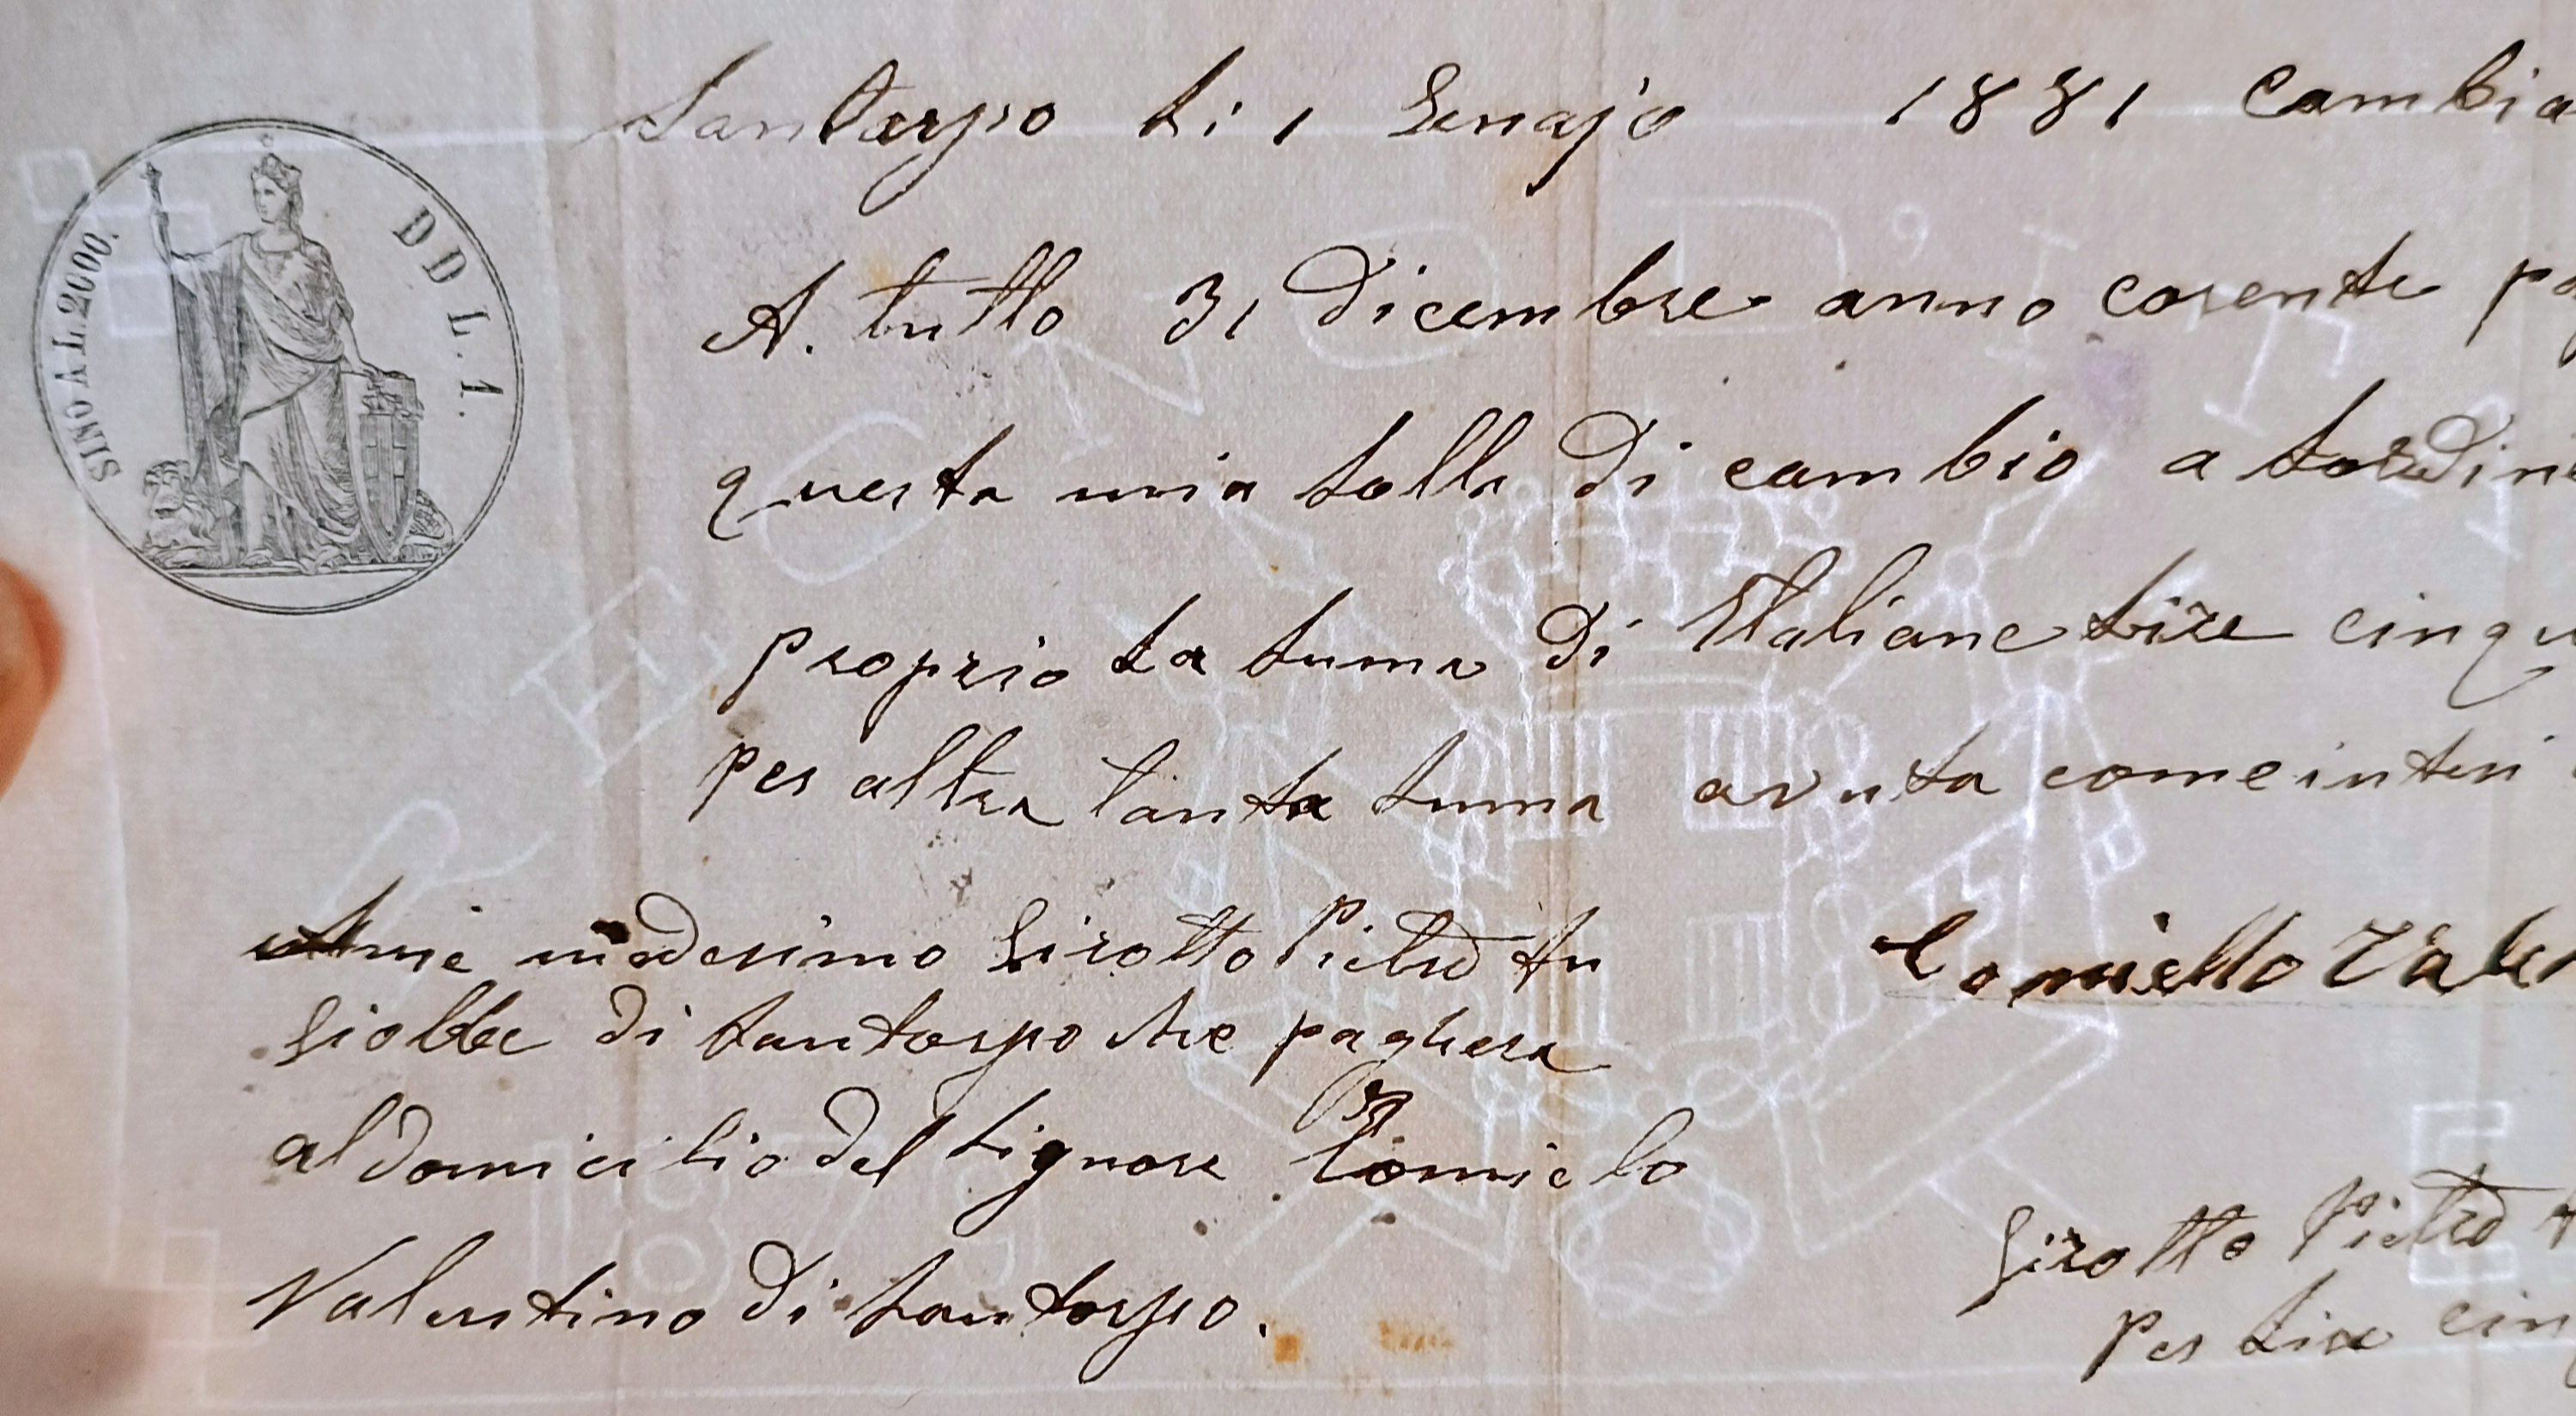 SINO A L. 2000.
D D L. 1.
Santorso li 1 Genajo 1881 Cambia
A. tutto 31 Dicembre anno corente pa
questa mia solla di cambio a lordine
proprio la suma di Italiane Lire cinqu
per altra tanta suma avuta come intesi
Amie medesimo Girotto Pietro fu
Giobbe di Santorso che paghera
al domicilio del Signore Comielo
Valentino di Santorso.
Comiello Valen
Girotto Pietro
Per Lire cin
REGNO D'ITALIA